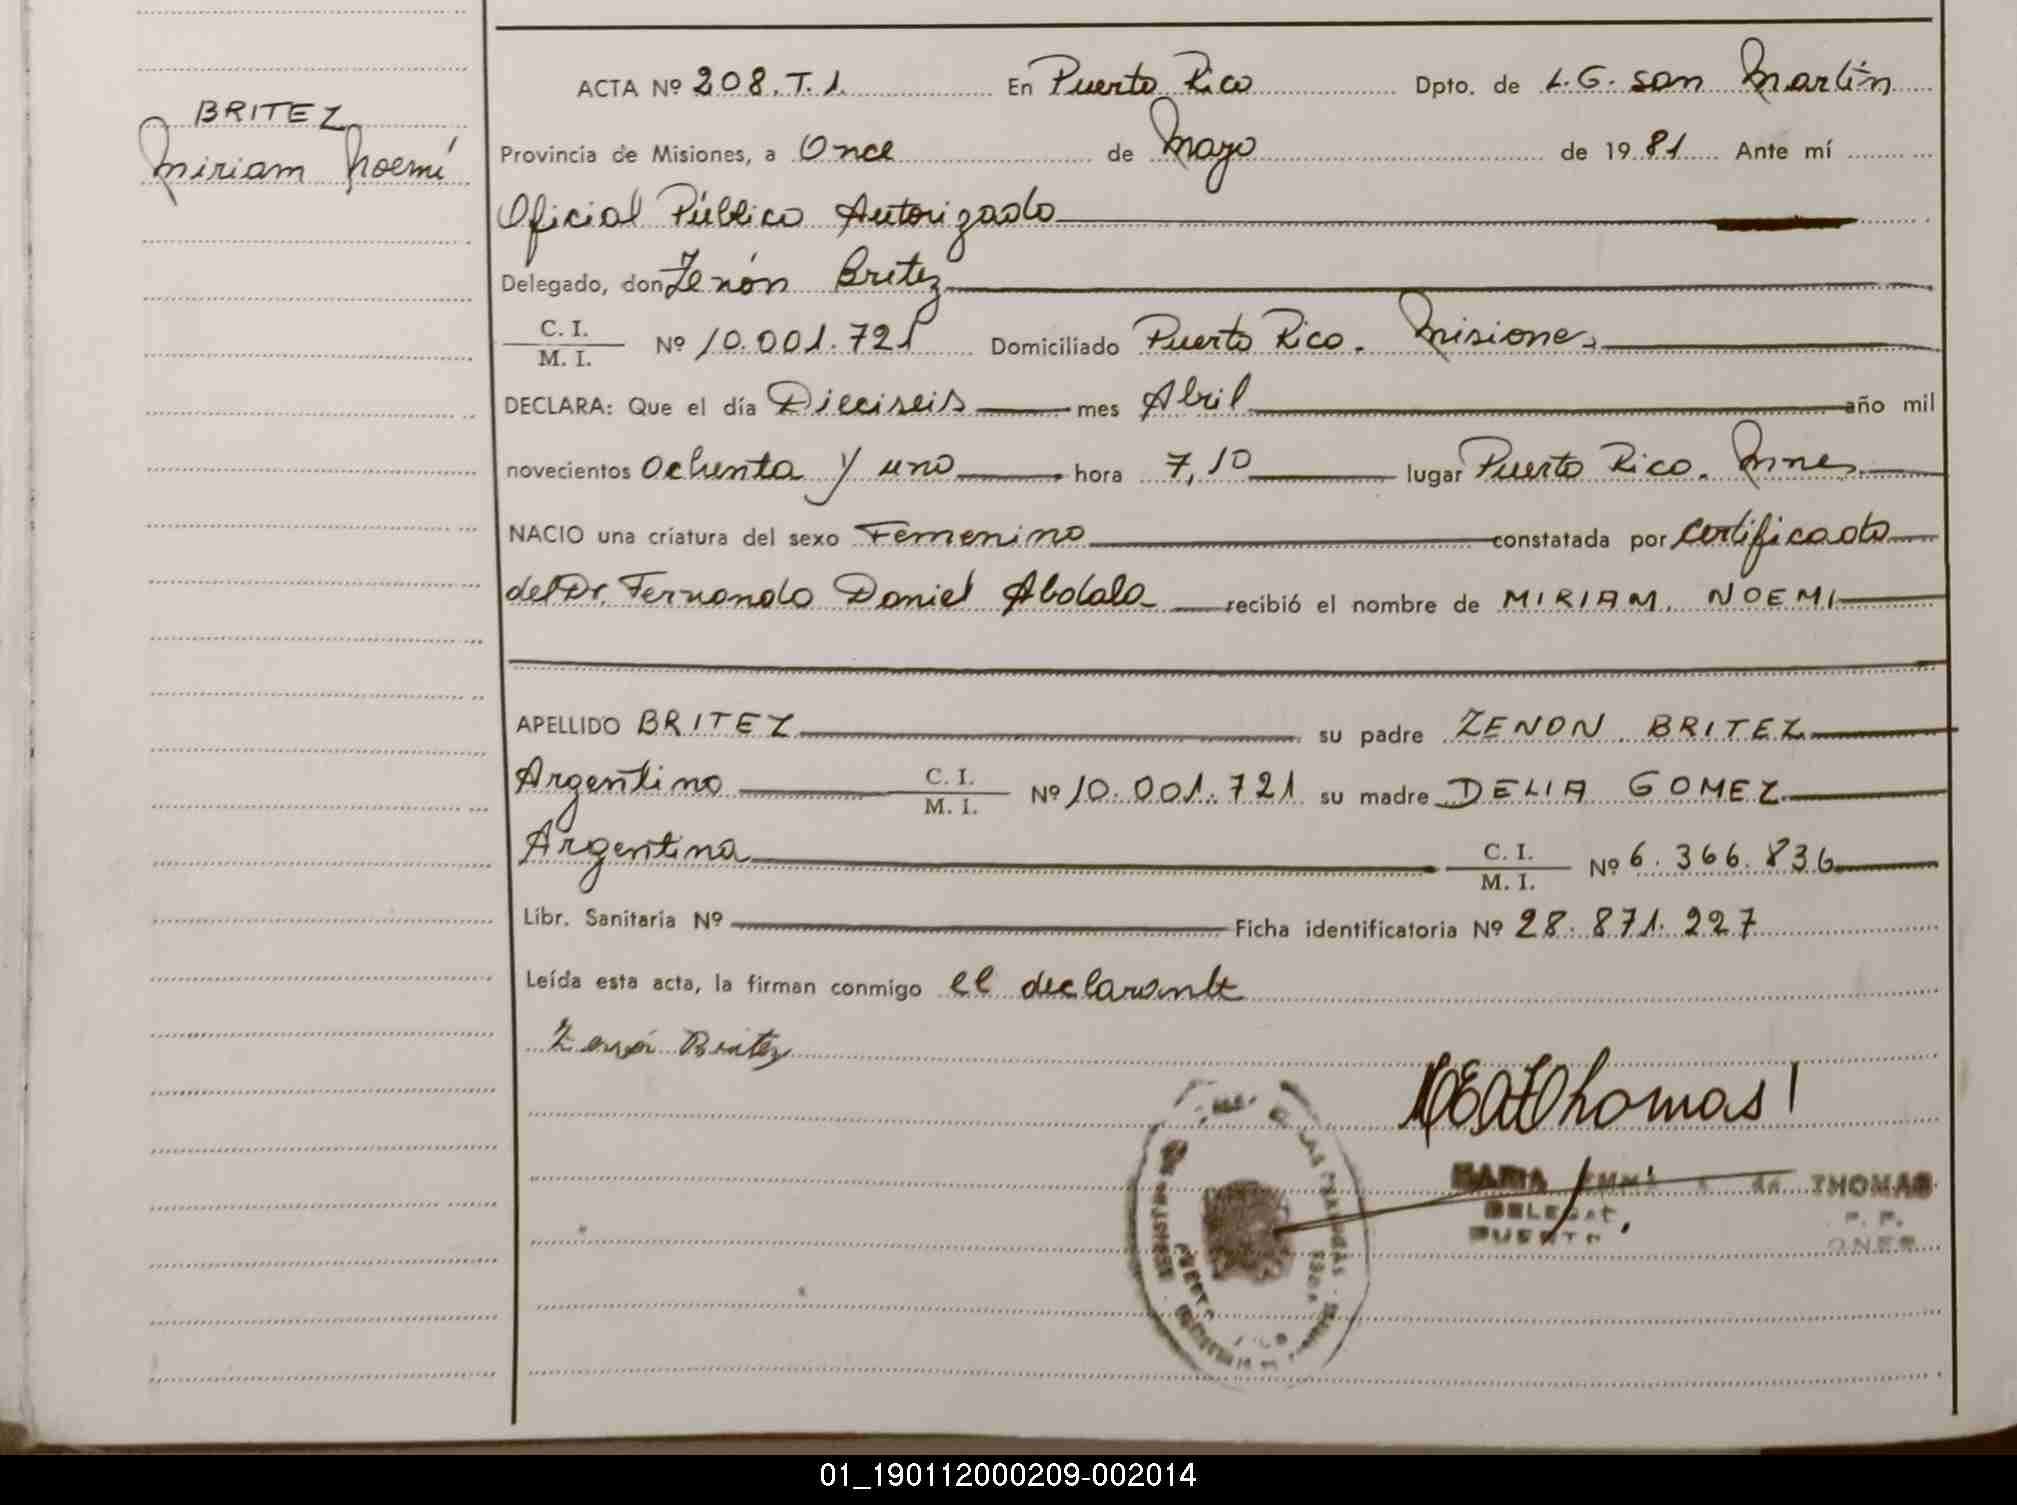 BRITEZ
Miriam Noemí
ACTA Nº 208.T.1. En Puerto Rico Dpto. de L.G. San Martín
Provincia de Misiones, a Once de Mayo de 1981 Ante mí
Oficial Público Autorizado
Delegado, don Zenón Britez
C. I. / M. I. Nº 10.001.721 Domiciliado Puerto Rico. Misiones
DECLARA: Que el día Dieciseis mes Abril año mil
novecientos Ochenta y uno hora 7,10 lugar Puerto Rico. Mnes
NACIO una criatura del sexo Femenino constatada por certificado
del Dr. Fernando Daniel Abdala recibió el nombre de MIRIAM NOEMI
APELLIDO BRITEZ su padre ZENON BRITEZ
Argentino C. I. / M. I. Nº 10.001.721 su madre DELIA GOMEZ
Argentina C. I. / M. I. Nº 6.366.836
Libr. Sanitaria Nº Ficha identificatoria Nº 28.871.227
Leída esta acta, la firman conmigo el declarante
Zenón Britez
Thomas
MARIA de THOMAS
PUERTO
01_190112000209-002014